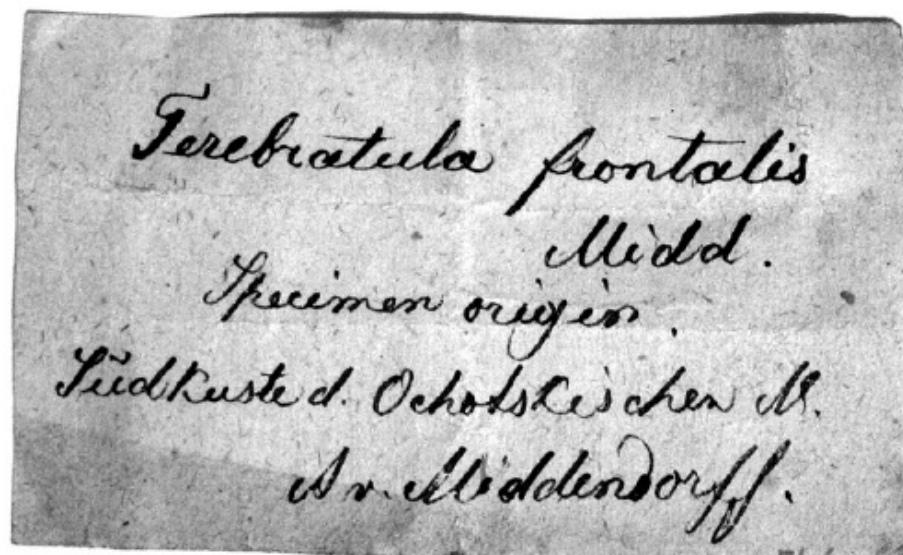 Terebratula frontalis
Midd.
Specimen origin.
Südkuste d. Ochotskischen M.
A v. Middendorff.